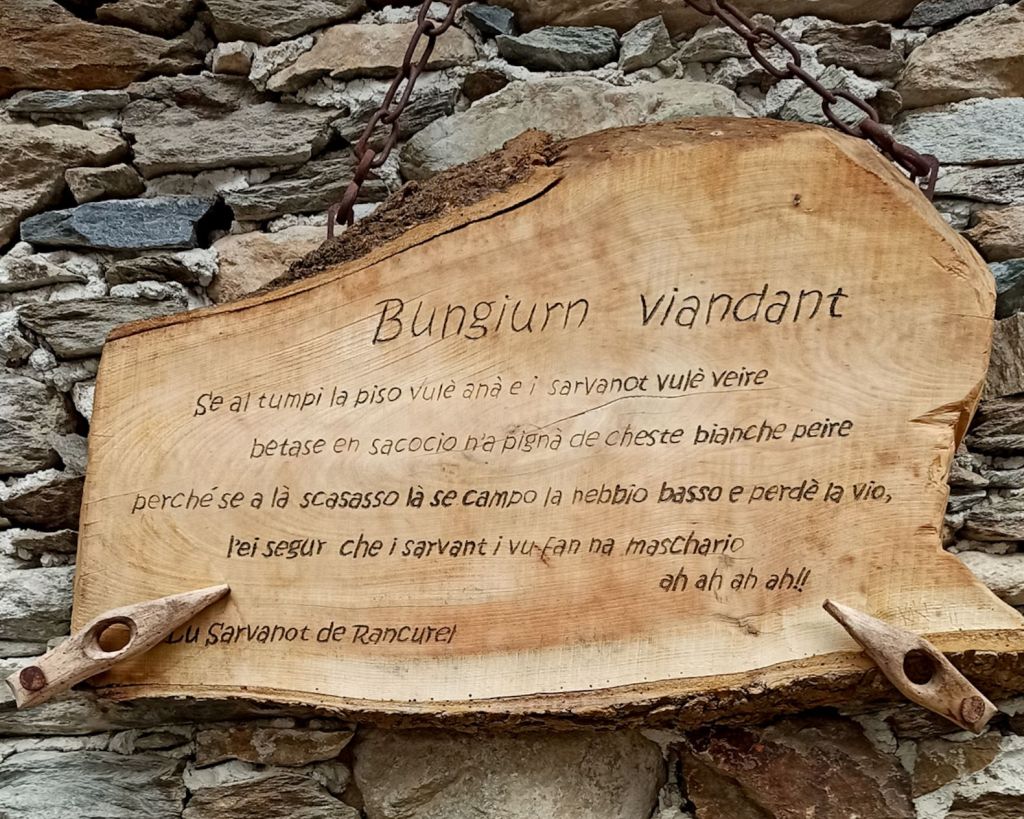 Bungiurn viandant
Se al tumpi la piso vulè anà e i sarvanot vulè veire
betase en sacocio n'a pignà de cheste bianche peire
perché se a là scasasso là se campo la nebbio basso e perdè la vio,
l'ei segur che i sarvant i vu fan na maschario
ah ah ah ah!!
Lu Sarvanot de Rancurel